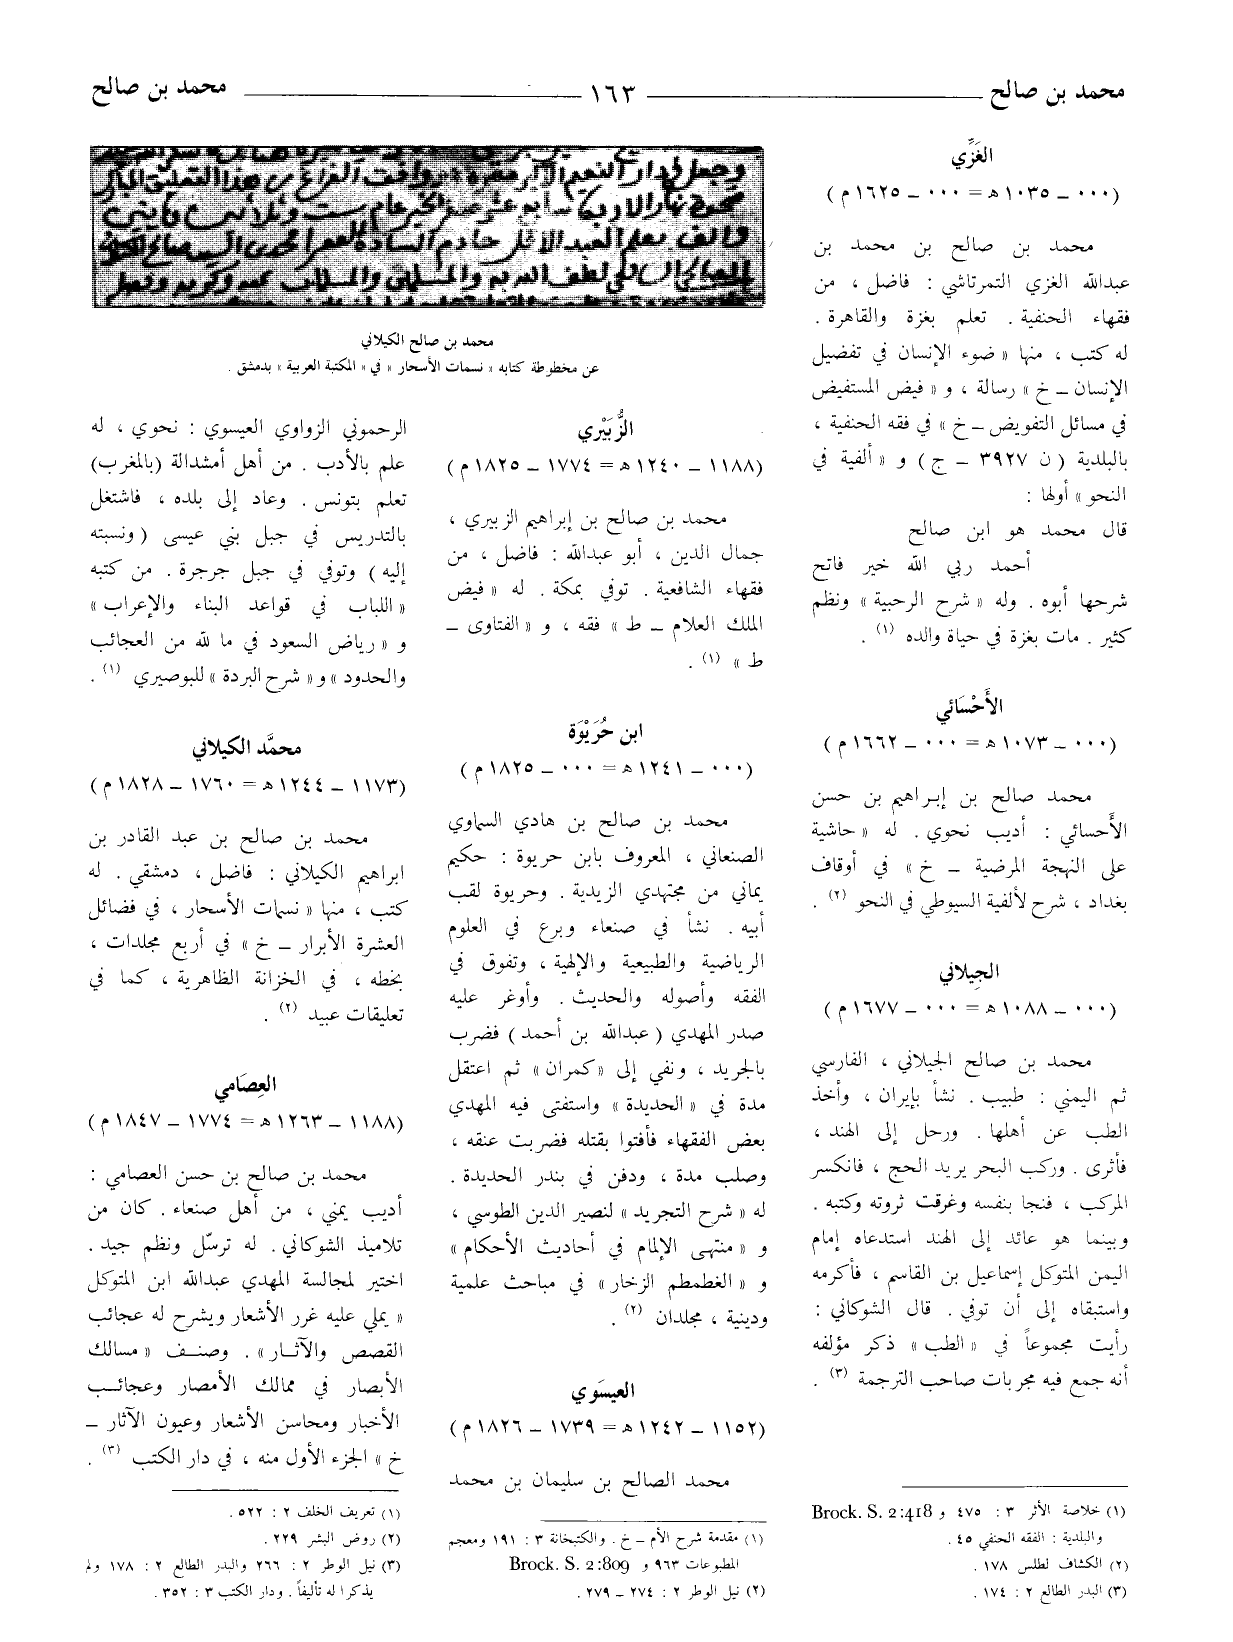 محمد بن صالح ـــــ ١٦٣ ـــــ محمد بن صالح
الغَزِّي
(٠٠٠ ــ ١٠٣٥ هـ = ٠٠٠ ــ ١٦٢٥ م)
محمد بن صالح بن محمد بن
عبدالله الغزي التمرتاشي : فاضل ، من
فقهاء الحنفية . تعلم بغزة والقاهرة .
له كتب ، منها « ضوء الإنسان في تفضيل
الإنسان ــ خ » رسالة ، و « فيض المستفيض
في مسائل التفويض ــ خ » في فقه الحنفية ،
بالبلدية ( ن ٣٩٢٧ ــ ج ) و « ألفية في
النحو » أولها :
قال محمد هو ابن صالح
أحمد ربي الله خير فاتح
شرحها أبوه . وله « شرح الرحبية » ونظم
كثير . مات بغزة في حياة والده (١) .
الأَحْسَائي
(٠٠٠ ــ ١٠٧٣ هـ = ٠٠٠ ــ ١٦٦٢ م)
محمد صالح بن إبراهيم بن حسن
الأَحسائي : أديب نحوي . له « حاشية
على النهجة المرضية ــ خ » في أوقاف
بغداد ، شرح لألفية السيوطي في النحو (٢) .
الجيلاني
(٠٠٠ ــ ١٠٨٨ هـ = ٠٠٠ ــ ١٦٧٧ م)
محمد بن صالح الجيلاني ، الفارسي
ثم اليمني : طبيب . نشأ بإيران ، وأخذ
الطب عن أهلها . ورحل إلى الهند ،
فأثرى . وركب البحر يريد الحج ، فانكسر
المركب ، فنجا بنفسه وغرقت ثروته وكتبه .
وبينما هو عائد إلى الهند استدعاه إمام
اليمن المتوكل إسماعيل بن القاسم ، فأكرمه
واستبقاه إلى أن توفي . قال الشوكاني :
رأيت مجموعاً في « الطب » ذكر مؤلفه
أنه جمع فيه مجربات صاحب الترجمة (٣) .
(١) خلاصة الأثر ٣ : ٤٧٥ و Brock. S. 2:418
والبلدية : الفقه الحنفي ٤٥ .
(٢) الكشاف لطلس ١٧٨ .
(٣) البدر الطالع ٢ : ١٧٤ .
محمد بن صالح الكيلاني
عن مخطوطة كتابه « نسمات الأسحار » في « المكتبة العربية » بدمشق .
الزُّبَيْري
(١١٨٨ ــ ١٢٤٠ هـ = ١٧٧٤ ــ ١٨٢٥ م)
محمد بن صالح بن إبراهيم الزبيري ،
جمال الدين ، أبو عبدالله : فاضل ، من
فقهاء الشافعية . توفي بمكة . له « فيض
الملك العلام ــ ط » فقه ، و « الفتاوى ــ
ط » (١) .
ابن حُرَيْوَة
(٠٠٠ ــ ١٢٤١ هـ = ٠٠٠ ــ ١٨٢٥ م)
محمد بن صالح بن هادي السماوي
الصنعاني ، المعروف بابن حريوة : حكيم
يماني من مجتهدي الزيدية . وحريوة لقب
أبيه . نشأ في صنعاء وبرع في العلوم
الرياضية والطبيعية والإلهية ، وتفوق في
الفقه وأصوله والحديث . وأوغر عليه
صدر المهدي ( عبدالله بن أحمد ) فضرب
بالجريد ، ونفي إلى « كمران » ثم اعتقل
مدة في « الحديدة » واستفتى فيه المهدي
بعض الفقهاء فأفتوا بقتله فضربت عنقه ،
وصلب مدة ، ودفن في بندر الحديدة .
له « شرح التجريد » لنصير الدين الطوسي ،
و « منتهى الإلمام في أحاديث الأحكام »
و « الغطمطم الزخار » في مباحث علمية
ودينية ، مجلدان (٢) .
العيسَوي
(١١٥٢ ــ ١٢٤٢ هـ = ١٧٣٩ ــ ١٨٢٦ م)
محمد الصالح بن سليمان بن محمد
(١) مقدمة شرح الأم ــ خ . والكتبخانة ٣ : ١٩١ ومعجم
المطبوعات ٩٦٣ و Brock. S. 2:809
(٢) نيل الوطر ٢ : ٢٧٤ ــ ٢٧٩ .
الرحموني الزواوي العيسوي : نحوي ، له
علم بالأدب . من أهل أمشدالة (بالمغرب)
تعلم بتونس . وعاد إلى بلده ، فاشتغل
بالتدريس في جبل بني عيسى ( ونسبته
إليه ) وتوفي في جبل جرجرة . من كتبه
« اللباب في قواعد البناء والإعراب »
و « رياض السعود في ما لله من العجائب
والحدود » و « شرح البردة » للبوصيري (١) .
محمَّد الكيلاني
(١١٧٣ ــ ١٢٤٤ هـ = ١٧٦٠ ــ ١٨٢٨ م)
محمد بن صالح بن عبد القادر بن
ابراهيم الكيلاني : فاضل ، دمشقي . له
كتب ، منها « نسمات الأسحار ، في فضائل
العشرة الأبرار ــ خ » في أربع مجلدات ،
بخطه ، في الخزانة الظاهرية ، كما في
تعليقات عبيد (٢) .
العِصَامي
(١١٨٨ ــ ١٢٦٣ هـ = ١٧٧٤ ــ ١٨٤٧ م)
محمد بن صالح بن حسن العصامي :
أديب يمني ، من أهل صنعاء . كان من
تلاميذ الشوكاني . له ترسّل ونظم جيد .
اختير لمجالسة المهدي عبدالله ابن المتوكل
« يملي عليه غرر الأشعار ويشرح له عجائب
القصص والآثـار » . وصنـف « مسالك
الأبصار في ممالك الأمصار وعجائـب
الأخبار ومحاسن الأشعار وعيون الآثار ــ
خ » الجزء الأول منه ، في دار الكتب (٣) .
(١) تعريف الخلف ٢ : ٥٢٢ .
(٢) روض البشر ٢٢٩ .
(٣) نيل الوطر ٢ : ٢٦٦ والبدر الطالع ٢ : ١٧٨ ولم
يذكرا له تأليفاً . ودار الكتب ٣ : ٣٥٢ .